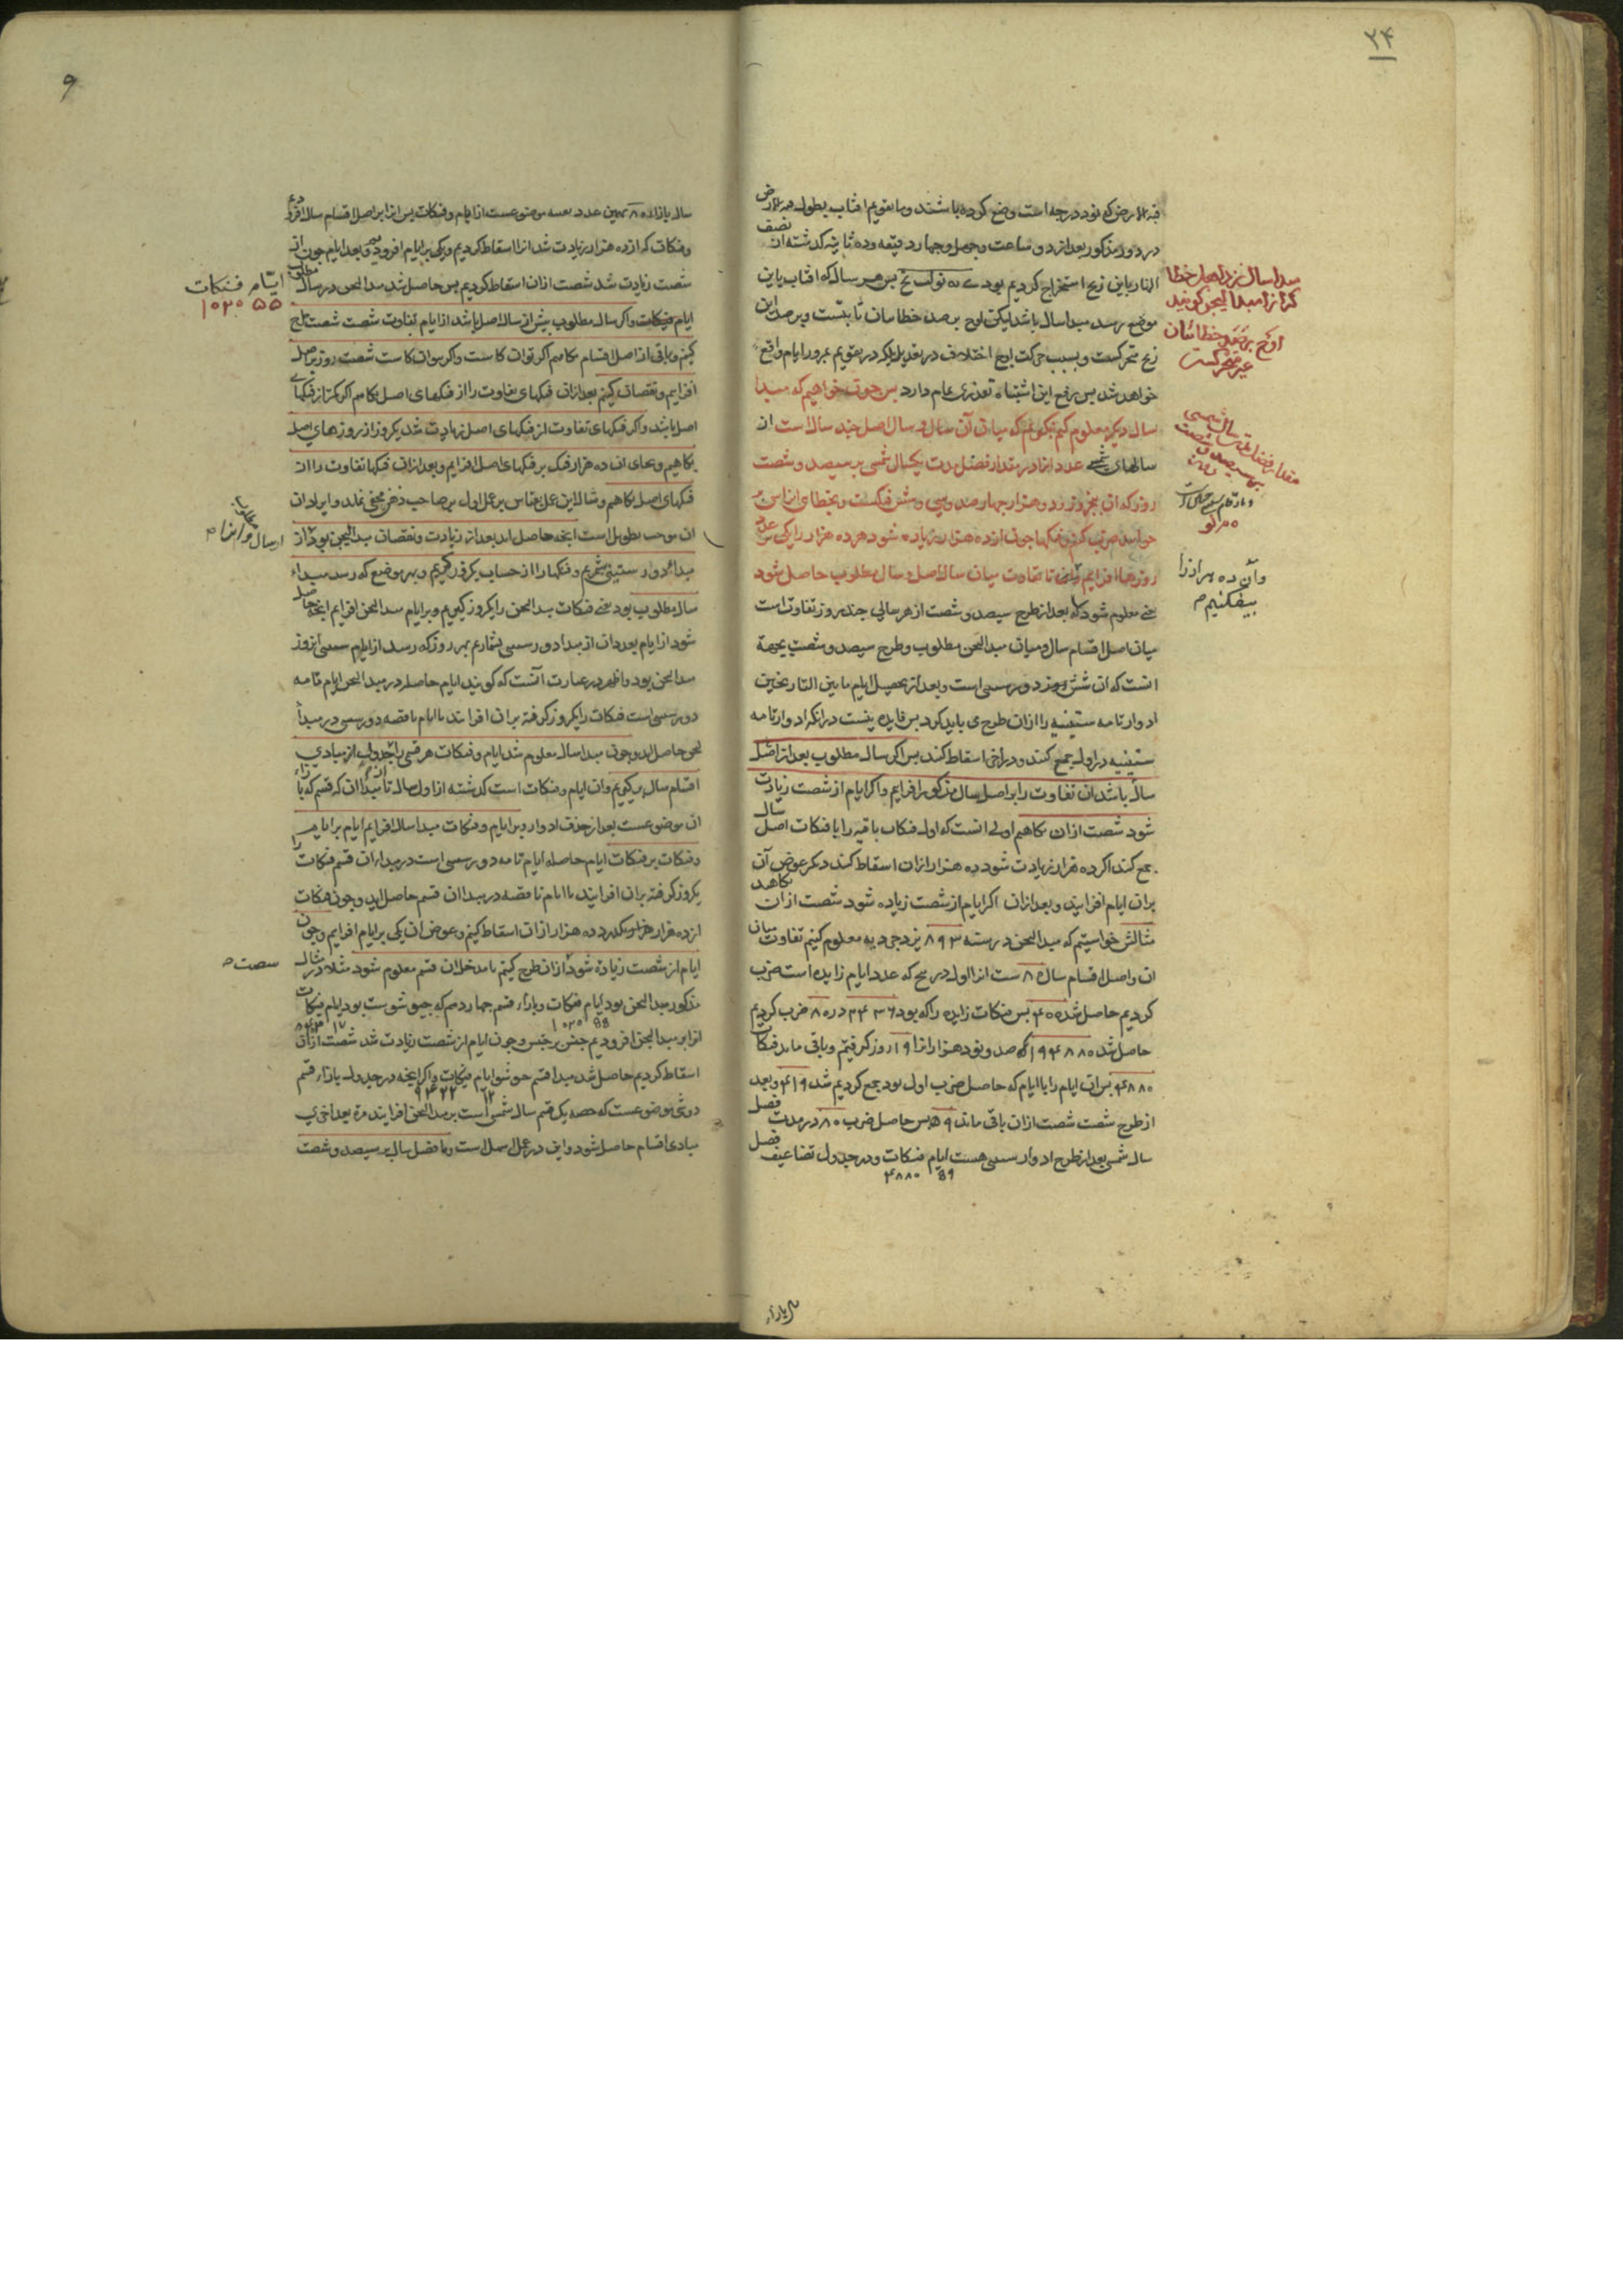 ۲۴
قبة الارض که نود درجه است وضع کرده باشند و ما تقویم افتاب بطول قبة الارض
در دور مذکور بعد از دو ساعت و چهل و چهار دقیقه و ده ثانیه که گذشته از نصف
النهار باین زیج استخراج کردیم بود پس هر سال که افتاب باین
موضع رسد مبدا سال باشد لیکن اوج برصد خطاییان ثابتست و برصد این
زیج متحرکست و بسبب حرکت اوج اختلاف در تعدیل بلکه در تقویم بمرور ایام واقع
خواهد شد پس رفع این اشتباه تعذری تمام دارد پس چون خواهیم که مبدا
سال دیگر معلوم کنیم بنگریم که میان آن سال و سال اصل چند سال است از
سالهای شمسی عدد انرا در مقدار فضل مدت یکسال شمسی بر سیصد و شصت
روز که ان پنج روز و دو هزار و چهار صد و سی و شش فنکست و بخطای
خوانند ضرب کنیم و فنکها چون از ده هزار زیاده شود هر ده هزار را یکی
روزها افزاییم تا تفاوت میان سال اصل و سال مطلوب حاصل شود
یعنی معلوم شود که بعد از طرح سیصد و شصت از هر سالی چند روز تفاوتست
میان اصل اقسام سال و میان مبدالحن مطلوب و طرح سیصد و شصت بجهة
انست که ان شش دور ستینی است و بعد از تحصیل ایام ما بین التاریخین
ادوار تامه ستینیه را ازان طرح می باید کرد پس فایده نیست درانکه ادوار تامه
ستینیه در اول جمع کنند و در اخر اسقاط کنند پس اگر سال مطلوب بعد از اصل
سال باشد ان تفاوت را بر اصل سال مذکور افزاییم و اگر ایام از شصت زیادت
شود شصت ازان بکاهیم اولی انست که اول فنکات باقیه را با فنکات اصل سال
جمع کند اگر ده هزار زیادت شود ده هزار ازان اسقاط کند دیگر عوض آن
بران ایام افزایند و بعد ازان اگر ایام از شصت زیاده شود شصت ازان بکاهد
مثالش خواستیم که مبدالحن در سنه ۸۹۳ یزدجردیه معلوم کنیم تفاوت میان
ان و اصل اقسام سال ۸۰ ست انرا اول در پنج که عدد ایام زایده است ضرب
کردیم حاصل شد ۴۰۰ پس فنکات زایده را که بود ۲۴۳۶ در ۸۰ ضرب کردیم
حاصل شد ۱۹۴۸۸۰ که صد و نود هزار انرا ۱۹ روز گرفتیم و باقی ماند فنکات
۴۸۸۰ پس ان ایام را با ایام که حاصل ضرب اول بود جمع کردیم شد ۴۱۹ و بعد
از طرح شصت شصت ازان باقی ماند ۵۹ پس حاصل ضرب ۸۰ در مدت فضل
سال شمسی بعد از طرح ادوار ستینی هست ایام فنکات و در جدول تضاعیف فضل
۵۹ ۴۸۸۰
مبدا سال نزد اهل خطا
که انرا مبدا لیحن گویند
اوج برصد خطائیان
غیر متحرکست
مقدار فضل مدت سال شمسی
بر سیصد و شصت
وآن ده هزار را
بیفکنیم
سال بازاء
۹
سال بازاء ۸۰ همین عدد بعینه موضوعست از ایام و فنکات پس انرا بر اصل اقسام سال افزودیم
و فنکات که از ده هزار زیادت شد انرا اسقاط کردیم و یکی بر ایام افزودیم و بعد ایام چون از
شصت زیادت شد شصت ازان اسقاط کردیم پس حاصل شد مبدالحن در سال مطلوب
ایام فنکات و اگر سال مطلوب پیش از سال اصل باشد از ایام تفاوت شصت شصت طرح
کنیم و باقی از اصل اقسام بکاهیم اگر توان کاست و اگر نتوان کاست شصت روز بر اصل
افزاییم و نقصان کنیم بعد ازان فنکهای تفاوت را از فنکهای اصل بکاهیم اگر کمتر از فنکهای
اصل باشد و اگر فنکهای تفاوت از فنکهای اصل زیادت شد یکروز از روزهای اصل
بکاهیم و بجای ان ده هزار فنک بر فنکهای اصل افزاییم و بعد ازان فنکهای تفاوت را از
فنکهای اصل بکاهیم و مثال این عمل بقیاس بر عمل اول بر صاحب ذهن مخفی نماند و ایراد ان
ان موجب تطویل است انچه حاصل اید بعد از زیادت و نقصان مبدالیحن بود از
مبداء دور ستینی بشمریم و فنکها را از حساب یکروز گیریم و بهر موضع که رسد مبداء
سال مطلوب بود یعنی فنکات مبدالحن را یکروز گیریم و بر ایام مبدالحن افزاییم انچه حاصل
شود از ایام بعد ازان از مبدا دور ستینی بشماریم بهر روز که رسد از ایام ستینی آنروز
مبدالحن بود و اظهر در عبارت آنست که گویند ایام حاصله در مبدالحن ایام تامه
دور ستینی است فنکات را یکروز گرفته بران افزایند تا ایام ناقصه دور ستینی در مبدأ
لحن حاصل اید و چون مبدا سال معلوم شد ایام و فنکات هر قسمی را از جدول مبادی
اقسام سال برگیریم و ان ایام و فنکات است که گذشته از اول سال تا مبدا ان که قسم که بازاء
ان موضوعست بعد از حذف ادوار و بر ایام و فنکات مبدا سال افزاییم ایام بر ایام
و فنکات بر فنکات ایام حاصله ایام تامه دور ستینی است در مبداء ان قسم فنکات را
یکروز گرفته بران افزایند تا ایام ناقصه در مبدا ان قسم حاصل اید و چون فنکات
از ده هزار بگذرد ده هزار ازان اسقاط کنیم و عوض ان یکی بر ایام افزاییم و چون
ایام از شصت زیاده شود ازان طرح کنیم تا مدخل ان قسم معلوم شود مثلا در مثال
مذکور مبدالحن بود ایام فنکات و بازاء قسم چهاردهم که جیو شوست بود ایام فنکات
انرا بر مبدالحن افزودیم جنس بر جنس و چون ایام از شصت زیادت شد شصت ازان
اسقاط کردیم حاصل شد مبدا قسم جو شو ایام فنکات و اگر انچه در جدول بازاء قسم
دومی موضوعست که حصه یک قسم سال شمسی است بر مبدالحن افزایند مرة بعد اخری
مبادی اقسام حاصل شود و این در عمل اسهل است و ما فضل سال بر سیصد و شصت
ایام فنکات
۵۵ ۱۰۲۰
شصت